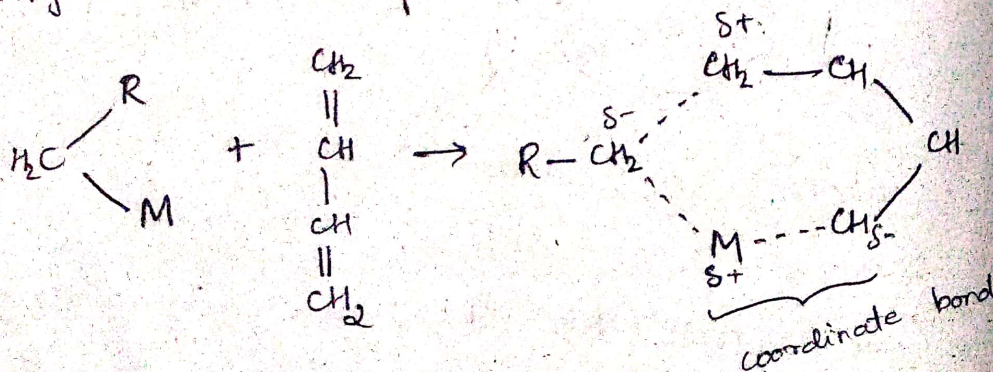 R
H₂C
M
+
CH₂
||
CH
|
CH
||
CH₂
→
δ+
CH₂ — CH
CH
δ-
R — CH₂
M ---- CHδ-
δ+
coordinate bond